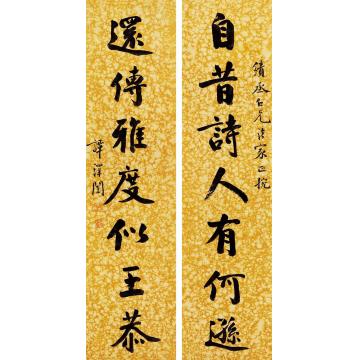 自昔詩人有何遜
績丞仁兄法家正挽
還傳雅度似王恭
譚澤闓